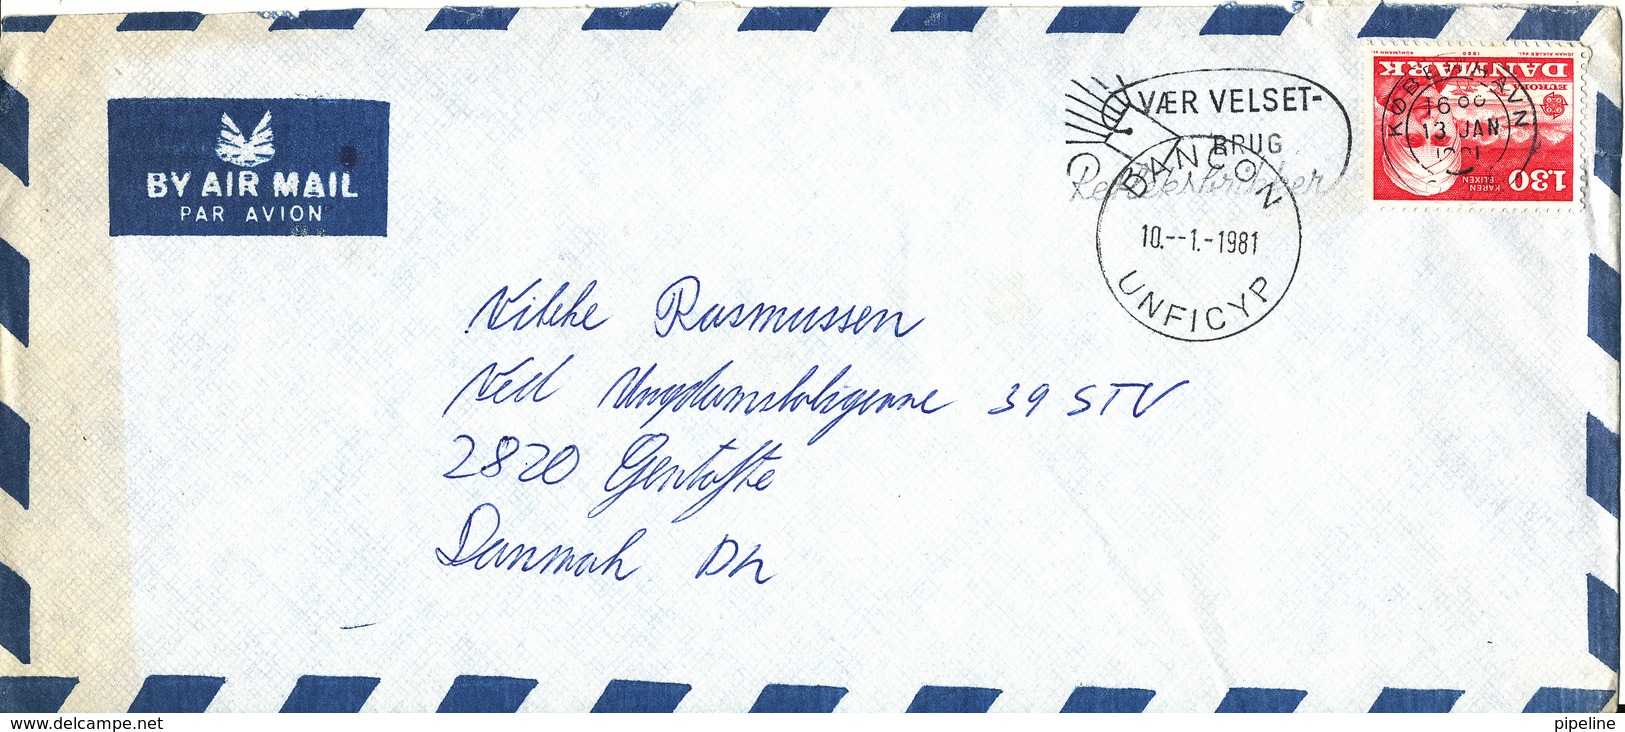 BY AIR MAIL
PAR AVION
VÆR VELSET-
BRUG
Refleksbrikker
DANCON
10.--1.-1981
UNFICYP
KØBENHAVN
16 00
13 JAN
1981
DANMARK
EUROPA
1980
130
KAREN
BLIXEN
Vibke Rasmussen
Ved Ungdomsboligerne 39 STV
2820 Gentofte
Danmark DK
www.delcampe.net
pipeline